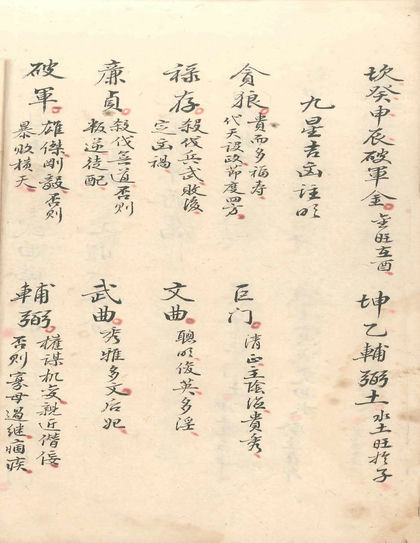 坎癸申辰破軍金金旺在酉 坤乙輔弼土水土旺於子
九星吉凶註明
貪狼貴而多福壽代天設政節度四方 巨门清正主陰滋貴秀
禄存殺伐兵武敗後定凶禍 文曲聰明俊英多淫
廉貞殺伐無道否則叛逆徒配 武曲秀雅多文后妃
破軍雄傑剛毅否則暴敗橫夭 輔弼權謀机变親近僭佞否則寡母過继痼疾